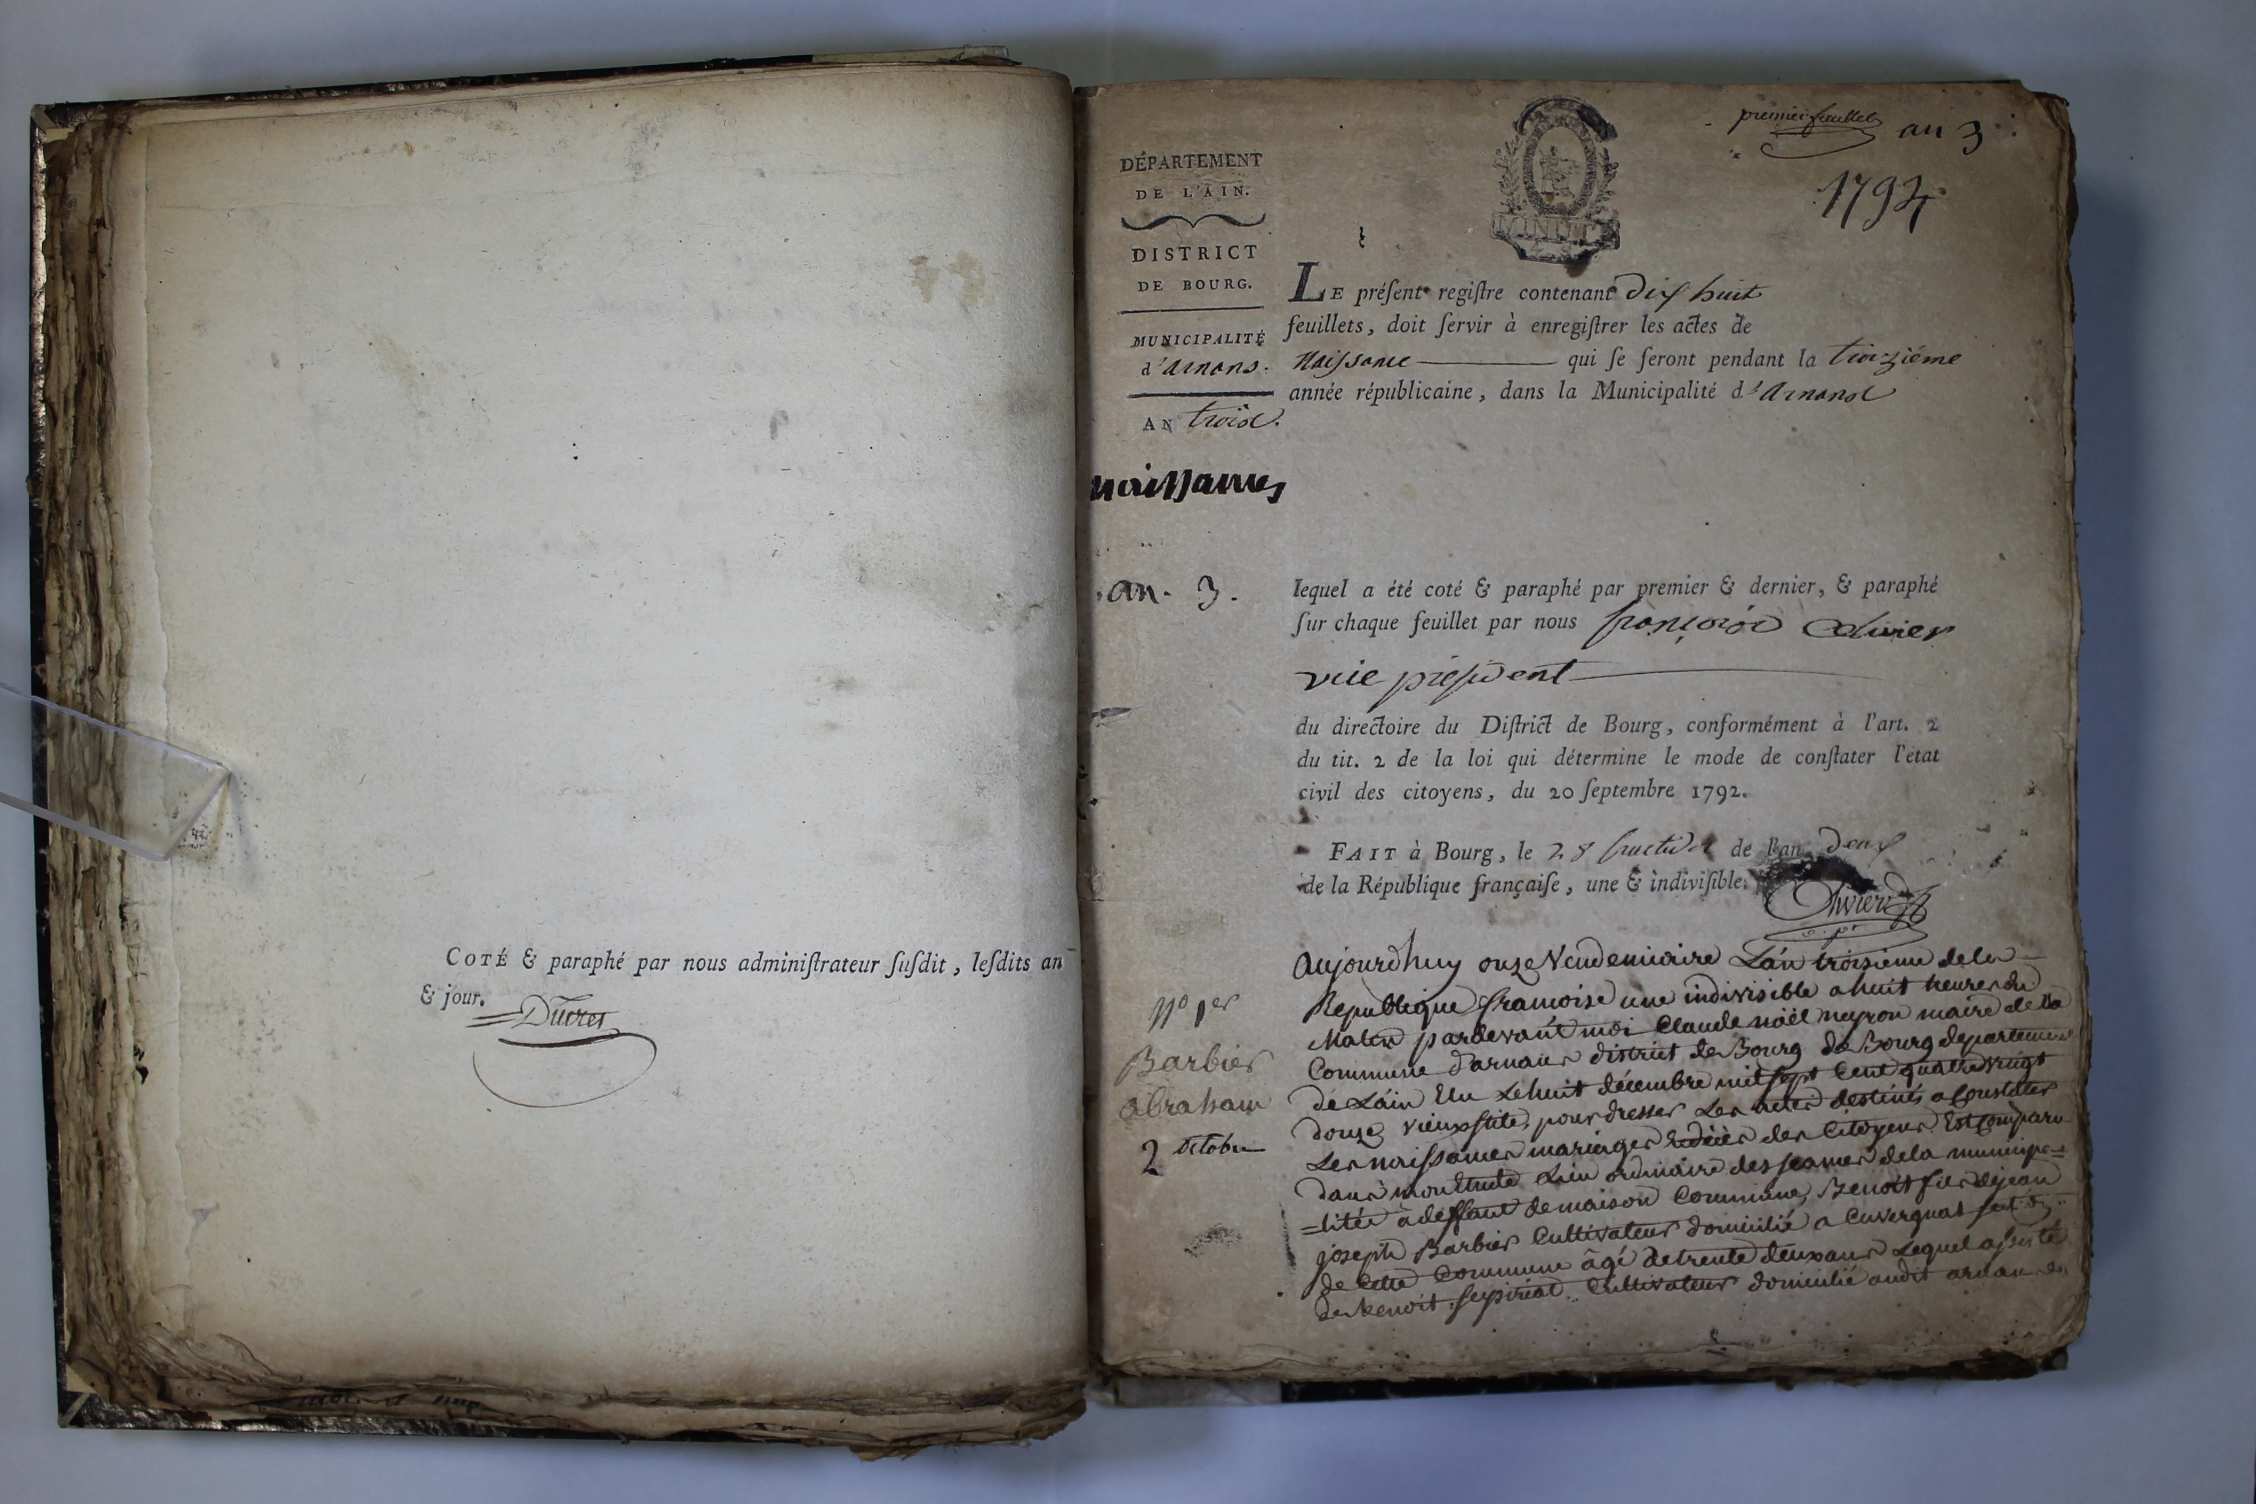 COTÉ & paraphé par nous adminiſtrateur ſuſdit, leſdits an
& jour.
Ducret
premier feuillet an 3
1794
MINUTE
DÉPARTEMENT
DE L'AIN.
DISTRICT
DE BOURG.
MUNICIPALITÉ
d'arnans.
AN troisé.
naissances
an. 3.
LE préſent regiſtre contenant dix huit
feuillets, doit ſervir à enregiſtrer les actes de
Naissance qui ſe feront pendant la troiziéme
année républicaine, dans la Municipalité d'arnans
lequel a été coté & paraphé par premier & dernier, & paraphé
ſur chaque feuillet par nous françois Olivier
vice président
du directoire du Diſtrict de Bourg, conformément à l'art. 2
du tit. 2 de la loi qui détermine le mode de conſtater l'état
civil des citoyens, du 20 ſeptembre 1792.
FAIT à Bourg, le 28 fructidor de l'an deux
de la République françaiſe, une & indiviſible.
Olivier
v. pr
No 1er
Barbier
abraham
2 octobre
aujourdhuy onze Vendemiaire L'an troisieme de la
Republique francoise une indivisible a huit heures du
Matin pardevant moi Claude noël neyron maire de la
Commune d'arnans district de Bourg de Bourg departement
de L'ain Elu Le huit décembre mil sept Cent quatre vingt
douze vieux stile, pour dresser Les actes destinés a Constater
Les naissances mariages et décès des Citoyens Est Comparu
dans mon Lieu ordinaire des seances de la municipa=
=lité à deffaut de maison Commune, Benoit fils de jean
joseph Barbier Cultivateur domicilié a Cuvergnat
de Cette Commune âgé de trente deux ans Lequel assisté
de benoit Cultivateur domicilié audit arnans